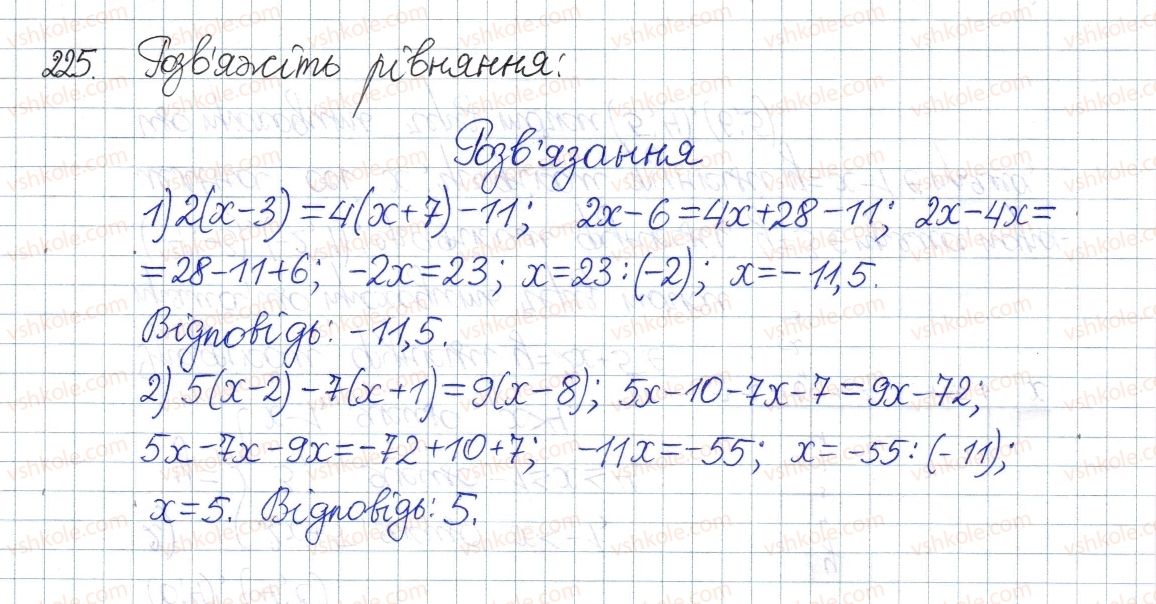 225. Розв'яжіть рівняння:
Розв'язання
1) 2(x-3)=4(x+7)-11; 2x-6=4x+28-11; 2x-4x=
=28-11+6; -2x=23; x=23:(-2); x=-11,5.
Відповідь: -11,5.
2) 5(x-2)-7(x+1)=9(x-8); 5x-10-7x-7=9x-72;
5x-7x-9x=-72+10+7; -11x=-55; x=-55:(-11);
x=5. Відповідь: 5.